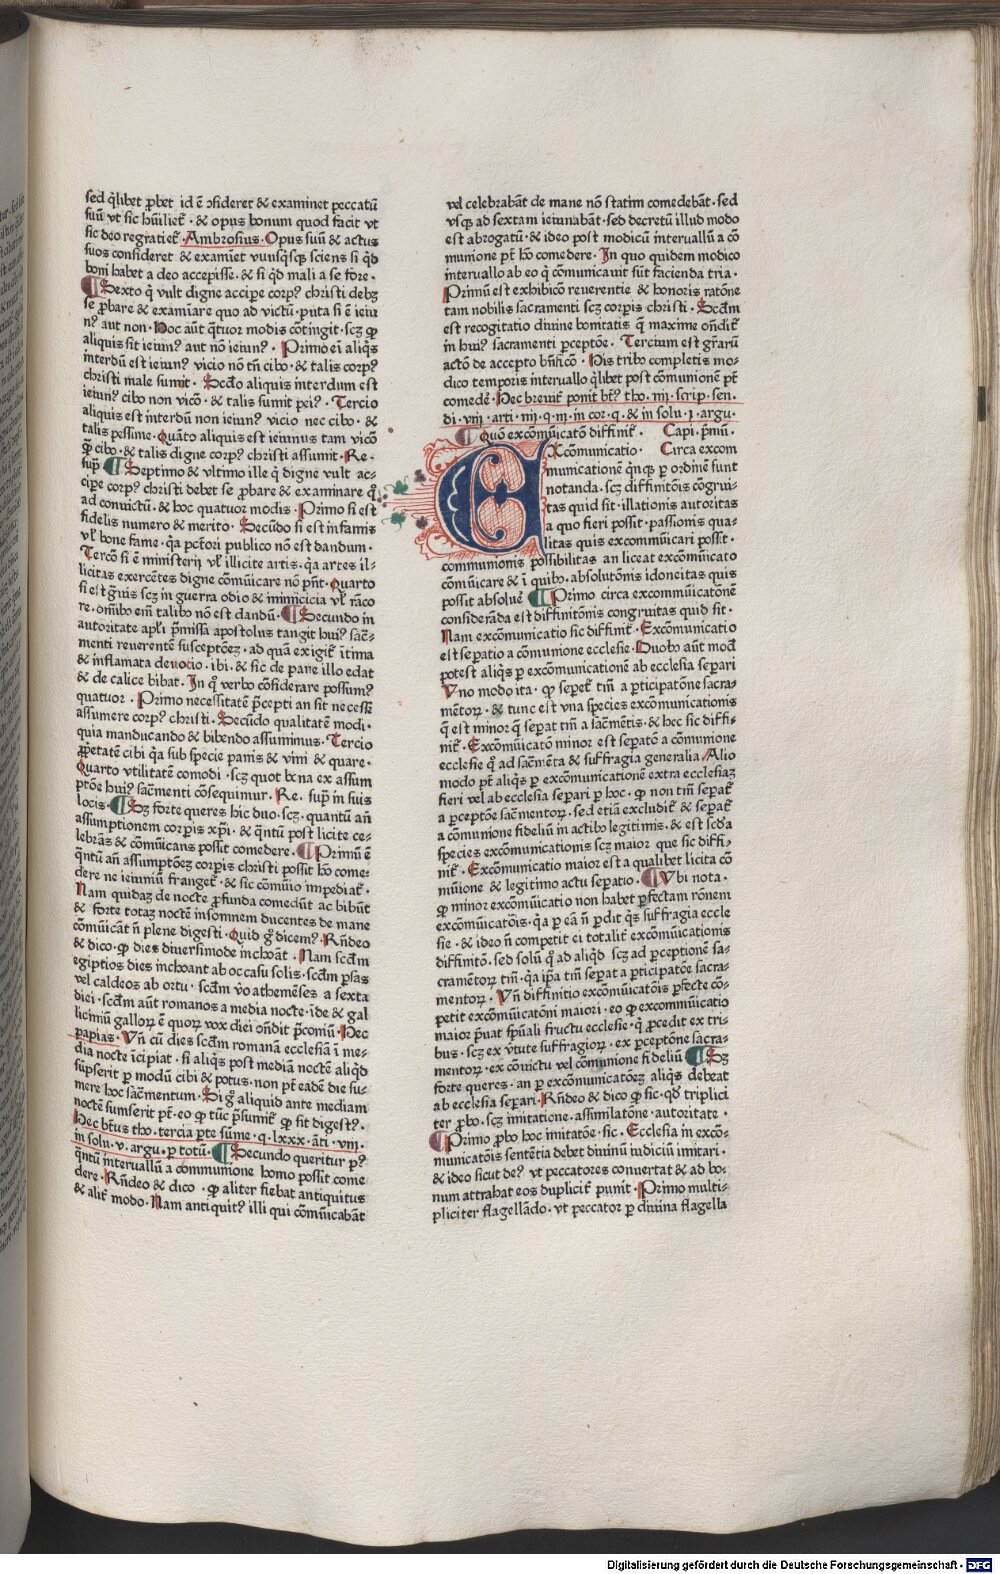 sed q̇libet ꝓbet id ē ꝯsideret & examinet peccatū
suū vt sic hūiliet᷑ · & opus bonum quod facit vt
sic deo regratiet᷑ · Ambrosius · Opus suū & actus
suos consideret & examīet vnusq̇sq; sciens si qḋ
boni habet a deo accepisse · & si qḋ mali a se fore ·
¶ Sexto q̇ vult digne accipe corpꝰ christi debꝫ
se ꝓbare & examīare quo ad victū · puta si ē ieiu
nꝰ aut non · Hoc aūt q̇tuor modis cōtingit · scꝫ ꝙ
aliquis sit ieiunꝰ aut nō ieiunꝰ · Primo eī aliq̇s
interdū est ieiunꝰ vicio nō tn̄ cibo · & talis corpꝰ
christi male sumit · Scd̄o aliquis interdum est
ieiunꝰ cibo non vicō · & talis sumit peiꝰ · Tercio
aliquis est interdū non ieiunꝰ vicio nec cibo · &
talis pessime · Quāto aliquis est ieiunus tam vicō
ꝙ̄ cibo · & talis digne corpꝰ christi assumit · Re ·
supͣ ¶ Septimo & vltimo ille q̇ digne vult ac-
cipe corpꝰ christi debet se ꝓbare & examinare qͦ
ad conuictū · & hoc quatuor modis · Primo si est
fidelis numero & merito · Secūdo si est infamis
vl̓ bone fame · q̇a pct̄ori publico nō est dandum ·
Tercō si ē ministerij vl̓ illicite artis · q̇a artes il-
licitas exercētes digne cōmūicare nō pn̄t · Quarto
si est gͣuis scꝫ in guerra odio & inimicicia vl̓ rāco
re · om̄ibꝰ em̄ talibꝰ nō est dandū · ¶ Secundo in
autoritate apl̓i p̄missa apostolus tangit huiꝰ sac̄-
menti reuerentē susceptōeꝫ · ad quā exigit᷑ ītima
& inflamata deuotio · ibi · & sic de pane illo edat
& de calice bibat · In qͦ verbo cōsiderare possumꝰ
quatuor · Primo necessitatē p̄cepti an sit necessē
assumere corpꝰ christi · Secūdo qualitatē modi ·
quia manducando & bibendo assuminus · Tercio
ꝓpͥetatē cibi q̇a sub specie panis & vini & quare ·
Quarto vtilitatē comodi · scꝫ quot bona ex assum
ptōe huiꝰ sac̄menti cōsequimur · Re · supͣ in suis
locis · ¶ Sꝫ forte queres hic duo · scꝫ · quantū añ
assumptionem corpꝑis xp̄i · & qͣntū post licite ce-
lebrās & cōmūicans possit comedere · ¶ Primū ē
qͣntū añ assumptōeꝫ corpꝑis christi possit hō come-
dere ne ieiuniū franget᷑ · & sic cōmūio impediat᷑ ·
Nam quidaꝫ de nocte ꝓfunda comedūt ac bibūt
& forte totaꝫ noctē insomnem ducentes de mane
cōmūicāt n̄ plene digesti · Quid gͦ dicemꝰ · Rn̄deo
& dico · ꝙ dies diuersimode inchoāt · Nam scd̄m
egiptios dies inchoant ab occasu solis · scd̄m ꝑsas
vel caldeos ab ortu · scd̄m v̊o athemēses a sexta
diei · scd̄m aūt romanos a media nocte · īde & gal
licimiū galloꝝ ē quoꝝ vox diei on̄dit p̄coniū · Hec
papias · Vn̄ cū dies scd̄m romanā ecclesiā ī me-
dia nocte īcipiat · si aliq̇s post mediā noctē aliqḋ
sūpserit ꝑ modū cibi & potus · non pt̄ eadē die su-
mere hoc sac̄mentum · Si gͦ aliquid ante mediam
noctē sumserit pt̄ · eo ꝙ tūc p̄sumit᷑ ꝙ sit digestꝰ ·
Hec bt̄us tho · tercia ꝑte sūme · q · lxxx · āti · viij ·
in solu · v · argu · ꝑ totū · ¶ Secundo queritur pꝰ
qͣntū interuallū a communione homo possit come
dere · Rn̄deo & dico · ꝙ aliter fiebat antiquitus
& alit᷑ modo · Nam antiquitꝰ illi qui cōmūicabāt
vel celebrabāt de mane nō statim comedebāt · sed
vsq; ad sextam ieiunabāt · sed decretū illud modo
est abrogatū · & ideo post modicū interuallū a cō
munione pt̄ hō comedere · In quo quidem modico
interuallo ab eo q̇ cōmunicauit sūt facienda tria ·
Primū est exhibicō reuerentie & honoris ratōne
tam nobilis sacramenti scꝫ corpꝑis christi · Scd̄m
est recogitatio diuine bonitatis q̄ maxime on̄dit᷑
in huiꝰ sacramenti ꝑceptōe · Tercium est gͣrarū
actō de accepto bn̄ficō · His tribꝰ completis mo-
dico temporis interuallo q̇libet post cōmunionē pt̄
comedeꝛ̄ · Hec breuit᷑ ponit bt̄ꝰ tho · iiij · scrip · sen ·
di · viij · arti · iiij · q · iij · in cor · q · & in solu · j · argu ·
¶ Quō excōmūicatō diffinit᷑ · Capi · pͥmū ·
EXcōmunicatio · Circa excom
municationē qͥnq; ꝑ ordinē sunt
notanda · scꝫ diffinitōis cōgrui-
tas quid sit · illationis autoritas
a quo fieri possit · passionis qua-
litas quis excommūicari possit ·
communionis possibilitas an liceat excōmūicato
cōmūicare & ī quibꝰ · absolutōnis idoneitas quis
possit absolueꝛ̄ ¶ Primo circa excommūicatōnē
considerāda est diffinitōnis congruitas quid sit ·
Nam excōmunicatio sic diffinit᷑ · Excōmunicatio
est seꝑatio a cōmunione ecclesie · Duobꝰ aūt mod̓
potest aliq̇s ꝑ excōmunicationē ab ecclesia seꝑari
Vno modo ita · ꝙ seꝑet᷑ tm̄ a ꝑticipatōne sacra-
mētoꝝ · & tunc est vna species excōmunicationis
q̄ est minor q̄ seꝑat tm̄ a sac̄mētis · & hec sic diffi-
nit᷑ · Excōmūicatō minor est seꝑatō a cōmunione
ecclesie qͦ ad sac̄mēta & suffragia generalia · Alio
modo pt̄ aliq̇s ꝑ excōmunicationē extra ecclesiaꝫ
fieri vel ab ecclesia seꝑari ꝑ hoc · ꝙ non tm̄ seꝑat᷑
a ꝑceptōe sac̄mentoꝝ · sed etiā excludit᷑ & seꝑat᷑
a cōmunione fideliū in actibꝰ legitimis · & est scd̄a
species excōmunicationis scꝫ maior que sic diffi-
nit᷑ · Excōmunicatio maior est a qualibet licita cō
mūione & legitimo actu seꝑatio · ¶ Vbi nota ·
ꝙ minor excōmunicatio non habet ꝑfectam rōnem
excōmūicatōis · q̇a ꝑ eā n̄ ꝑdit q̇s suffragia eccle
sie · & ideo n̄ competit ei totalit᷑ excōmūicationis
diffinitō · sed solū qͦ ad aliqḋ scꝫ ad ꝑceptionē sa-
cramētoꝝ tm̄ · q̇a ip̄a tm̄ seꝑat a ꝑticipatōe sacra-
mentoꝝ · Vn̄ diffinitio excōmūicatōis ꝑfecte cō-
petit excōmūicatōni maiori · eo ꝙ excommūicatio
maior pͥuat sp̄uali fructu ecclesie · q̇ ꝓcedit ex tri-
bus · scꝫ ex v̓tute suffragioꝝ · ex ꝑceptōne sacra-
mentoꝝ · ex cōuictu vel cōmunione fideliū ¶ Sꝫ
forte queres · an ꝑ excōmunicatōeꝫ aliq̇s debeat
ab ecclesia seꝑari · Rn̄deo & dico ꝙ sic · qḋ triplici
ter ꝓbo · scꝫ imitatione · assimilatōne · autoritate ·
¶ Primo ꝓbo hoc imitatōe · sic · Ecclesia in excō-
municatōis sentētia debet diuinū iudiciū imitari ·
& ideo sicut deꝰ vt peccatores conuertat & ad bo-
num attrahat eos duplicit᷑ punit · Primo multi-
pliciter flagellādo · vt peccator ꝑ diuina flagella
Digitalisierung gefördert durch die Deutsche Forschungsgemeinschaft - DFG